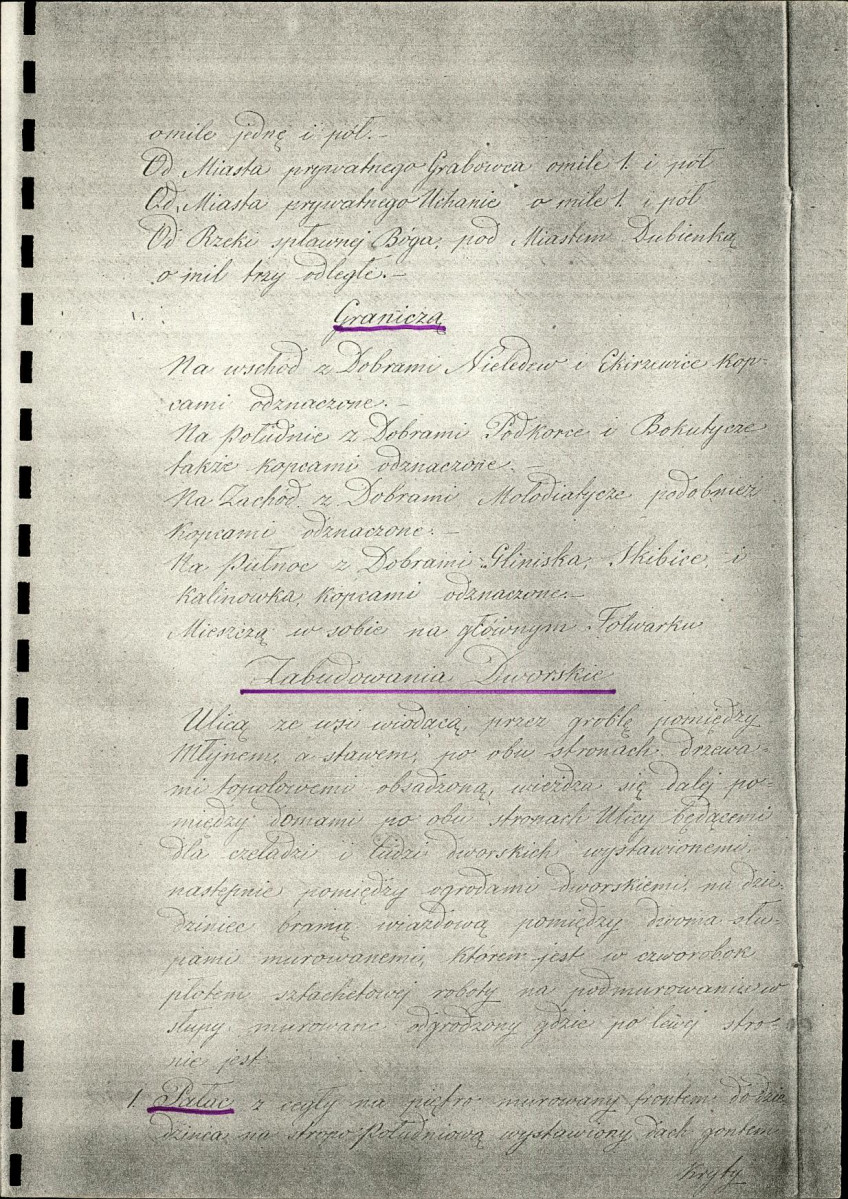 o mile jednę i pół. –
Od Miasta prywatnego Grabowca o mile 1. i pół
Od Miasta prywatnego Uchanie o mile 1. i pół
Od Rzeki spławnej Bóga, pod Miastem Dubienką
o mil trzy odległe. –
Graniczą
Na wschód z Dobrami Nieledew i kop-
cami odznaczone. –
Na Południe z Dobrami Podkorce i Bokutycze
także kopcami odznaczone. –
Na Zachód z Dobrami Mołodiatycze podobnież
kopcami odznaczone. –
Na Pułnoc z Dobrami Gliniska, Skibice, i
Kalinowka, kopcami odznaczone. –
Mieszczą w sobie na głównym Folwarku
Zabudowania Dworskie
Ulicą ze wsi wiodącą, przez groblę pomiędzy
Młynem, a stawem, po obu stronach drzewa-
mi topolowemi obsadzoną, wieżdza się dalej po-
między domami po obu stronach Ulicy będącemi
dla czeladzi i ludzi dworskich wystawionemi,
następnie pomiędzy ogrodami dworskiemi, na dzie-
dziniec bramą wiazdową pomiędzy dwoma słu-
pami murowanemi, którem jest w czworobok
płotem sztachetowej roboty na podmurowaniu w
słupy murowane odgrodzony gdzie po lewej stro-
nie jest
1. Pałac z cegły na piętro murowany frontem do dzie-
dzinca, na stronę Południową wystawiony dach gontem
kryty